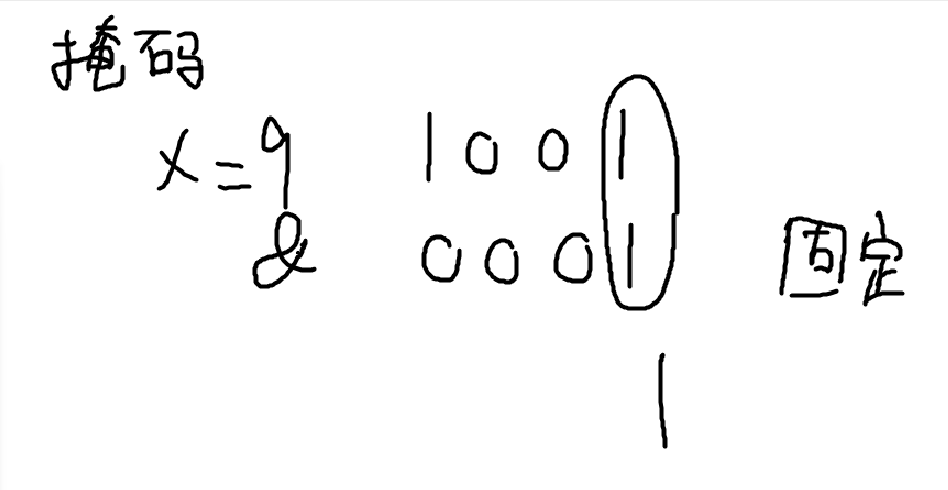 掩码
x=9 1001
& 0001 固定
1